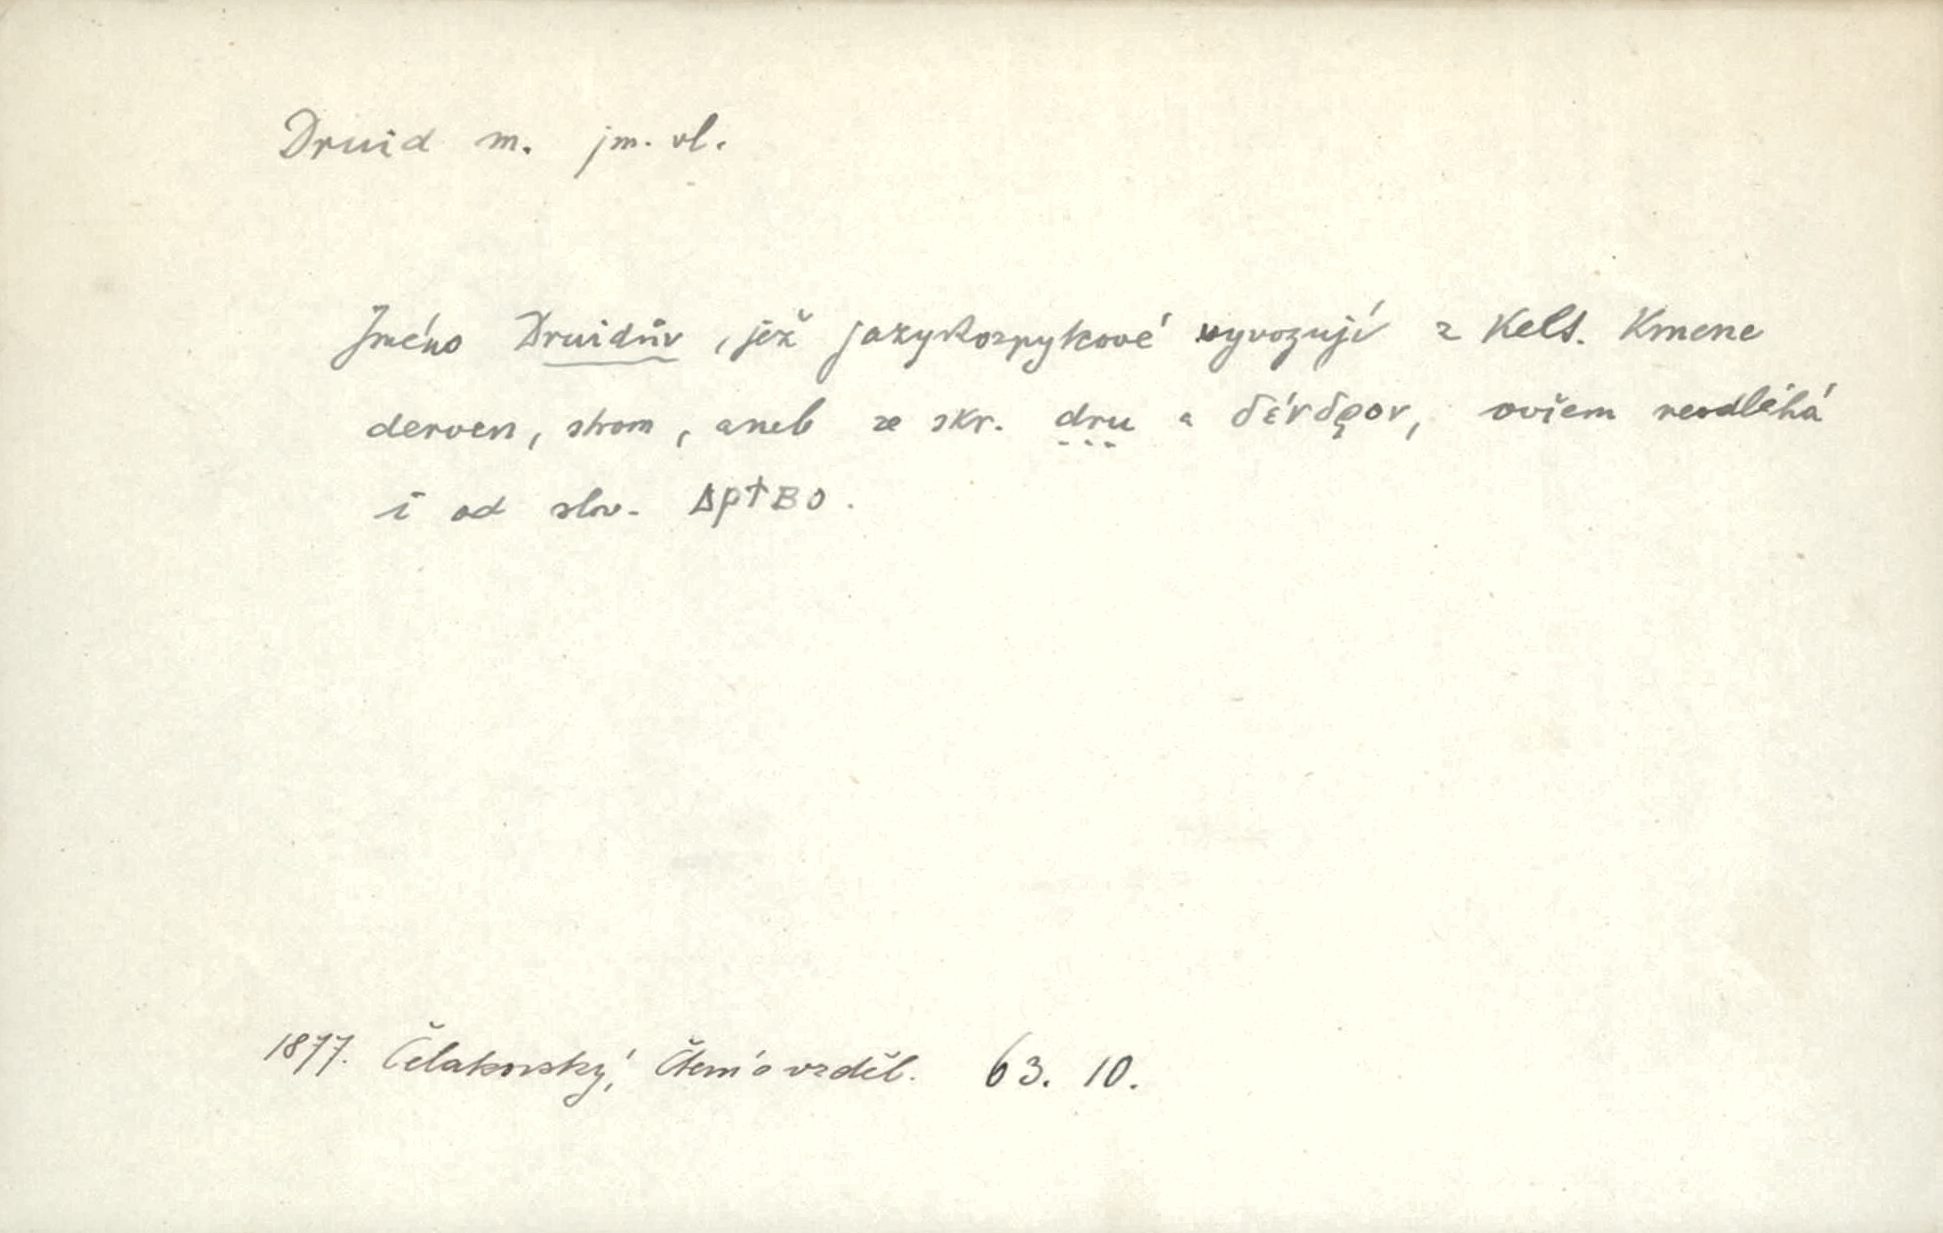 Druid m. jm. vl.
Jméno Druidův, jež jazykozpytcové vyvozují z Kelt. Kmene
derven, strom, aneb ze skr. dru a δένδρον, ovšem neodléhá
i od slov. ДР†ВО.
1877. Čelakovský, Čtení o vzděl. 63. 10.